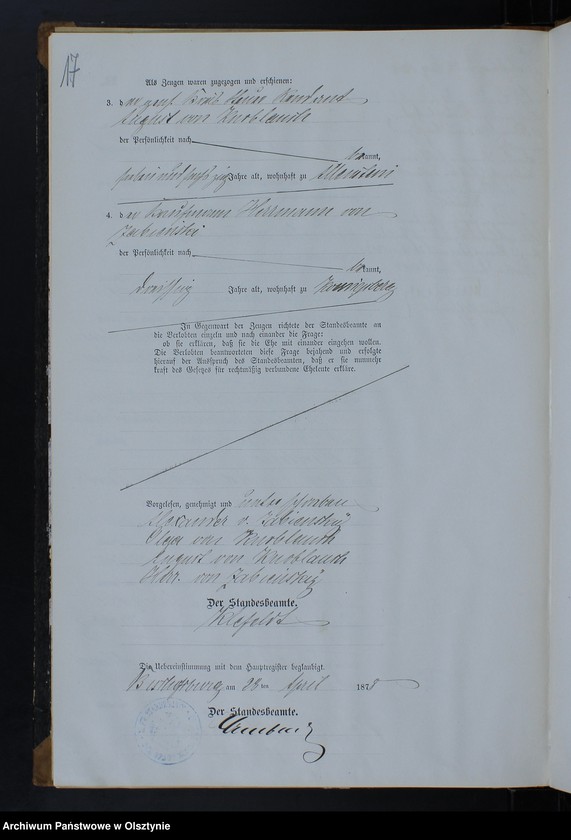 17
Als Zeugen waren zugezogen und erschienen:
3. der
August von Knoblauch
der Persönlichkeit nach
bekannt,
Jahre alt, wohnhaft zu Allenstein
4. der Kaufmann Herrmann von
Zabienski
der Persönlichkeit nach
bekannt,
dreißig Jahre alt, wohnhaft zu Königsberg
In Gegenwart der Zeugen richtete der Standesbeamte an
die Verlobten einzeln und nach einander die Frage:
ob sie erklären, daß sie die Ehe mit einander eingehen wollen.
Die Verlobten beantworteten diese Frage bejahend und erfolgte
hierauf der Ausspruch des Standesbeamten, daß er sie nunmehr
kraft des Gesetzes für rechtmäßig verbundene Eheleute erkläre.
Vorgelesen, genehmigt und unterschrieben
Alexander v. Zabiensky
Olga von Knoblauch
August von Knoblauch
Herr. von Zabiensky
Der Standesbeamte.
Klefeldt
Die Uebereinstimmung mit dem Hauptregister beglaubigt.
am 28 ten April 1878
Der Standesbeamte.
Archiwum Państwowe w Olsztynie